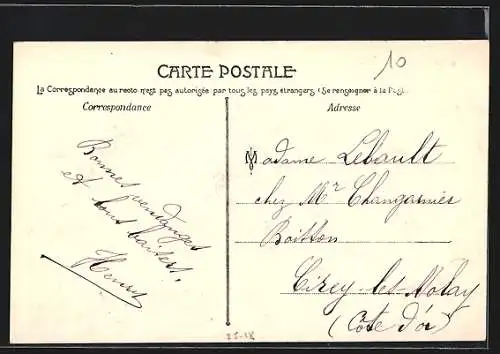 CARTE POSTALE
La Correspondance au recto n'est pas autorisée par tous les pays étrangers (Se renseigner à la Poste
Correspondance
Adresse
10
Bonnes vendanges
et bons baisers.
Henri
Madame Lebault
chez Mr Changarnier
Cirey-les-Nolay
(Côte d'or)